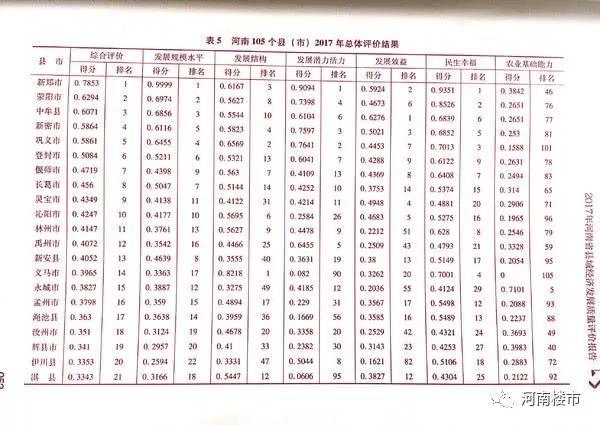 表5 河南105个县（市）2017年总体评价结果
县 市 综合评价 发展规模水平 发展结构 发展潜力活力 发展效益 民生幸福 农业基础能力
得分 排名 得分 排名 得分 排名 得分 排名 得分 排名 得分 排名 得分 排名
新郑市 0.7853 1 0.9999 1 0.6167 3 0.9094 1 0.5924 2 0.9351 1 0.3842 46
荥阳市 0.6294 2 0.6974 2 0.5627 8 0.7398 4 0.4673 6 0.8526 2 0.2651 76
中牟县 0.6071 3 0.6856 3 0.5544 10 0.6104 6 0.6276 1 0.6839 6 0.2651 77
新密市 0.5864 4 0.6116 5 0.5823 4 0.7597 3 0.5021 3 0.6852 5 0.253 81
巩义市 0.5861 5 0.6455 4 0.6569 2 0.7641 2 0.4453 7 0.7013 3 0.1588 101
登封市 0.5084 6 0.5211 6 0.5321 13 0.6041 7 0.4288 9 0.6122 9 0.2631 78
偃师市 0.4719 7 0.4398 9 0.563 7 0.4109 13 0.4369 8 0.6408 7 0.2494 83
长葛市 0.456 8 0.5047 7 0.5144 14 0.4252 10 0.3753 14 0.5374 15 0.314 65
灵宝市 0.4349 9 0.4138 11 0.4122 31 0.4214 11 0.4948 4 0.4881 20 0.2906 71
沁阳市 0.4247 10 0.4177 10 0.5695 6 0.2584 26 0.4683 5 0.5275 16 0.1965 96
林州市 0.4147 11 0.3761 13 0.5627 9 0.4478 9 0.2212 51 0.628 8 0.2546 79
禹州市 0.4072 12 0.3542 16 0.4466 25 0.6455 5 0.2509 43 0.4793 21 0.3328 59
新安县 0.4052 13 0.4639 8 0.3555 40 0.3631 19 0.38 13 0.5149 17 0.2054 95
义马市 0.3965 14 0.3363 17 0.8218 1 0.082 90 0.3262 20 0.7001 4 0 105
永城市 0.3827 15 0.3887 12 0.3275 49 0.4185 12 0.2036 55 0.4124 29 0.7101 5
孟州市 0.3798 16 0.359 15 0.4894 17 0.229 31 0.3567 17 0.5498 12 0.2088 93
渑池县 0.363 17 0.3638 14 0.3959 36 0.1669 56 0.3585 16 0.5489 13 0.2237 88
汝州市 0.351 18 0.3124 19 0.4678 20 0.3358 20 0.2529 42 0.4321 24 0.3693 49
辉县市 0.341 19 0.2957 20 0.41 33 0.2382 30 0.3143 23 0.4253 27 0.3983 40
伊川县 0.3353 20 0.2594 22 0.3331 47 0.5044 8 0.1621 82 0.5106 18 0.2883 72
淇 县 0.3343 21 0.3166 18 0.5447 12 0.0606 95 0.3827 12 0.4304 25 0.2122 92
2017年河南省县域经济发展质量评价报告
河南楼市